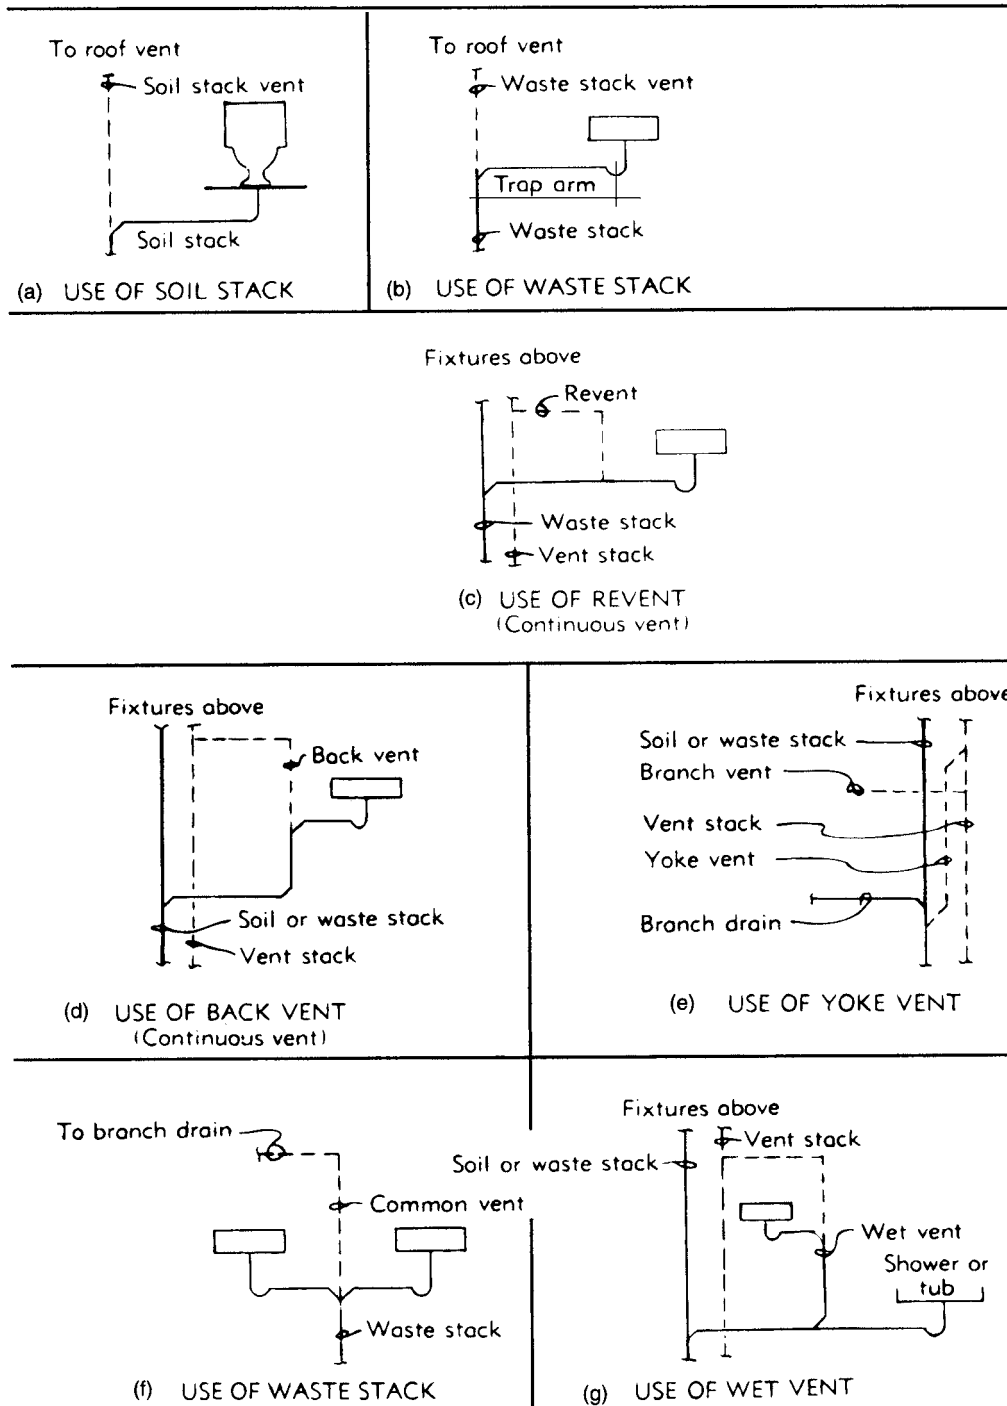 To roof vent
Soil stack vent
Soil stack
(a) USE OF SOIL STACK
To roof vent
Waste stack vent
Trap arm
Waste stack
(b) USE OF WASTE STACK
Fixtures above
Revent
Waste stack
Vent stack
(c) USE OF REVENT
(Continuous vent)
Fixtures above
Back vent
Soil or waste stack
Vent stack
(d) USE OF BACK VENT
(Continuous vent)
Fixtures above
Soil or waste stack
Branch vent
Vent stack
Yoke vent
Branch drain
(e) USE OF YOKE VENT
To branch drain
Common vent
Waste stack
(f) USE OF WASTE STACK
Fixtures above
Vent stack
Soil or waste stack
Wet vent
Shower or
tub
(g) USE OF WET VENT